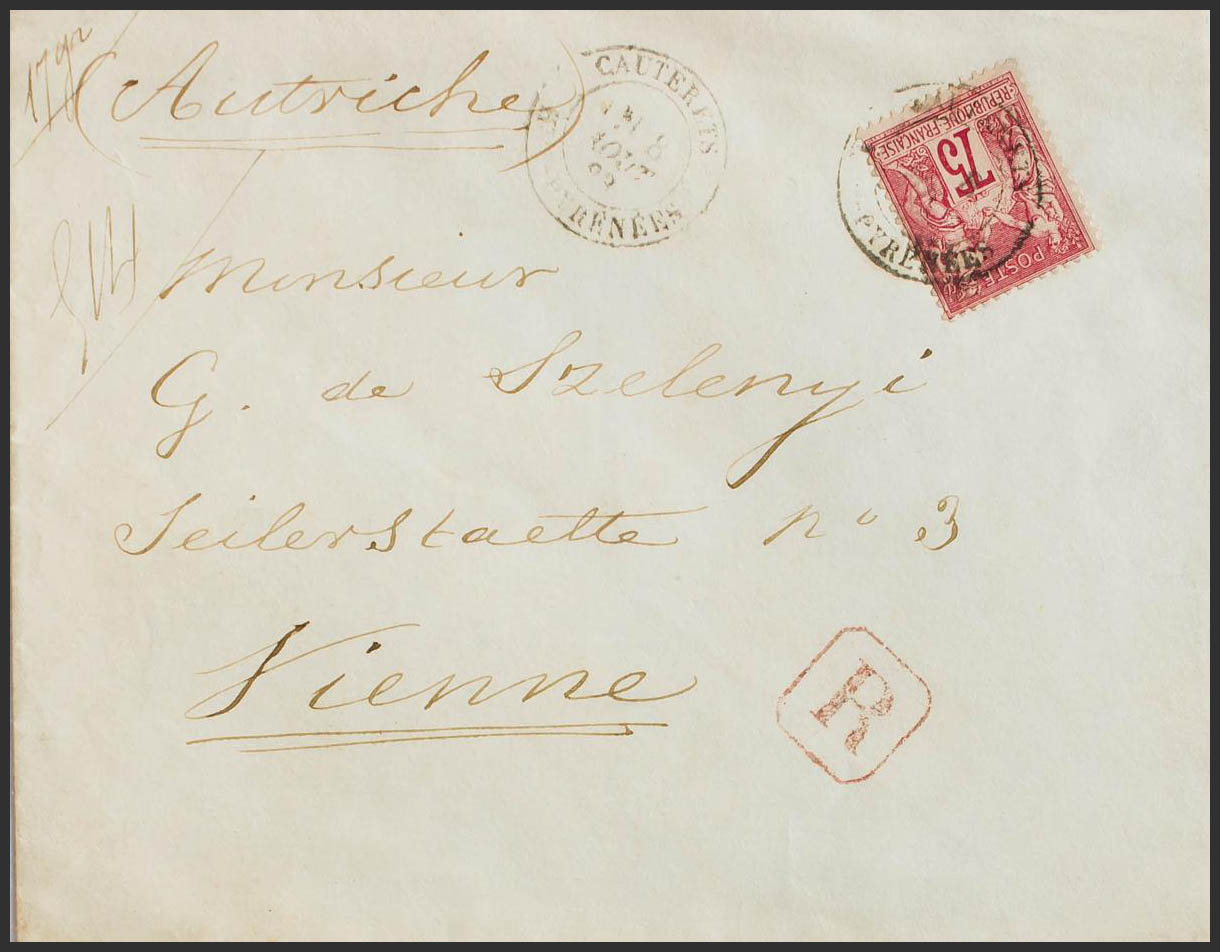 17 gr
(Autriche)
CAUTERETS
8
AOUT
PYRÉNÉES
REPUBLIQUE FRANÇAISE
75
POSTE
PYRÉNÉES
Monsieur
G. de Szelenyi
Seilerstaette no 3
Vienne
R